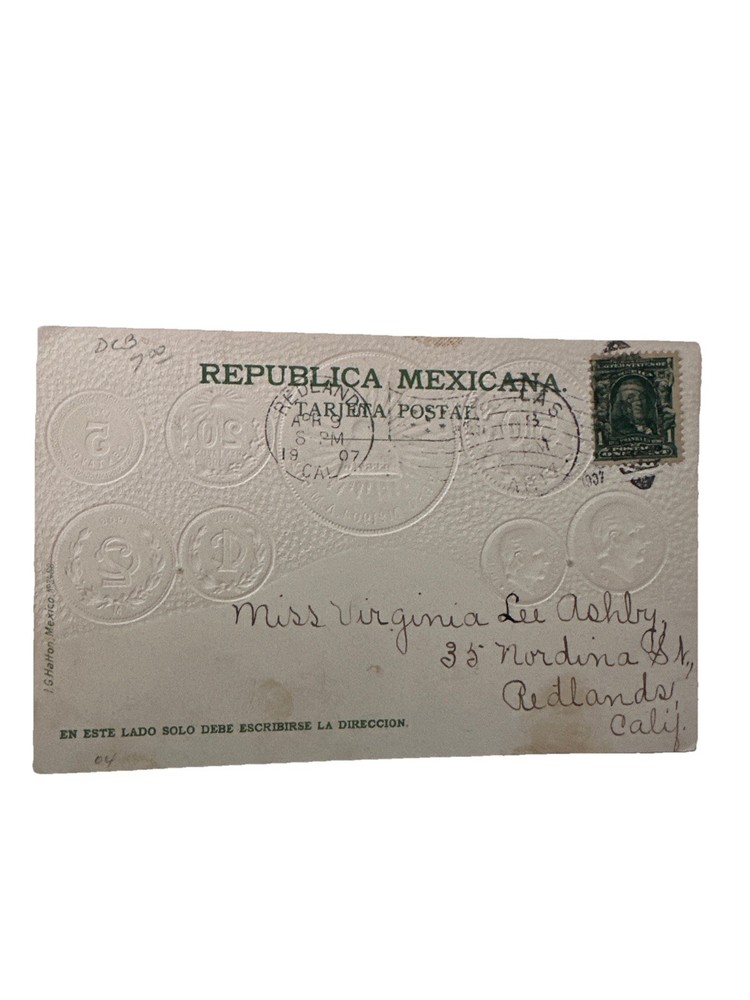 DCB
7.00
REPUBLICA MEXICANA.
TARJETA POSTAL.
REDLANDS
APR 9
6 PM
19 07
CAL.
LAS
8
M
1907
1
1
5
20
2
1
Miss Virginia Lee Ashby,
35 Nordina St.,
Redlands,
Calif.
J. G. Hatton, Mexico.
EN ESTE LADO SOLO DEBE ESCRIBIRSE LA DIRECCION.
04